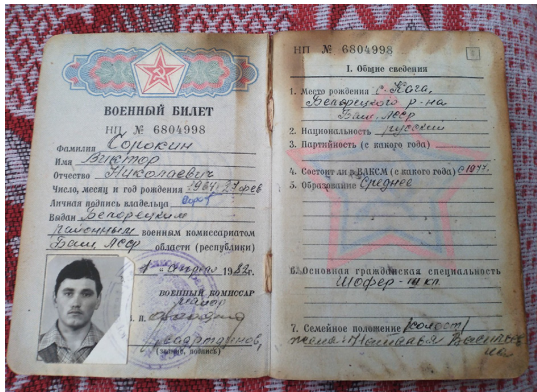 ВОЕННЫЙ БИЛЕТ
НП № 6804998
Фамилия Сорокин
Имя Виктор
Отчество Николаевич
Число, месяц и год рождения 1964 г. 27 фев
Личная подпись владельца
Выдан Белорецким
районным военным комиссариатом
Баш. АССР области (республики)
1 апреля 1982 г.
ВОЕННЫЙ КОМИССАР
майор
(звание, подпись)
НП № 6804998
I. Общие сведения
1. Место рождения с. Кага,
Белорецкого р-на
Баш. АССР
2. Национальность русский
3. Партийность (с какого года)
4. Состоит ли в ВЛКСМ (с какого года) с 1977 г.
5. Образование Среднее
6. Основная гражданская специальность
Шофер - III кл.
7. Семейное положение холост
жена - Наталья